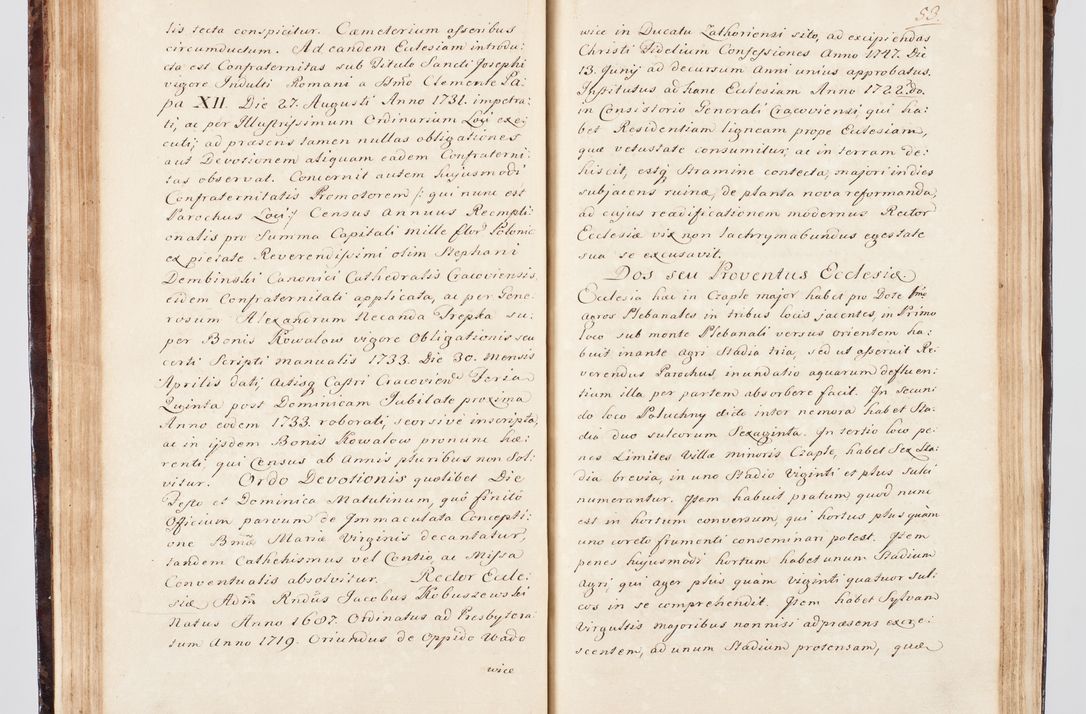 tis tecta conspicitur. Cæmeterium asseribus
circumductum. Ad eandem Ecclesiam introdu:
cta est Confraternitas sub Titulo Sancti Josephi
vigore Indulti Romani a Ssmo Clemente Pa:
pa XII. Die 27. Augusti Anno 1731. impetra:
ti, ac per Illustrissimum Ordinarium Loci exe:
cuti; ad præsens tamen nullas obligationes
aut Devotionem aliquam eadem Confraterni:
tas observat. Concernit autem hujusmodi
Confraternitatis Promotorem /: qui nunc est
Parochus Loci :/ Census Annuus Reempti:
onalis pro Summa Capitali mille flor. Polonic
ex pietate Reverendissimi olim Stephani
Dembinski Canonici Cathedralis Cracoviensis
eidem Confraternitati applicata, ac per Gene:
rosum Alexandrum Necanda Trepka su:
per Bonis Kowalow vigore Obligationis seu
certi Scripti manualis 1733. Die 30. Mensis
Aprilis dati, Actisq Castri Cracovien. Feria
Quinta post Dominicam Jubilate proxima
Anno eodem 1733. roborati, seorsive inscripta,
ac in ijsdem Bonis Kowalow pronunc hæ:
renti, qui Census ab Annis pluribus non Sol:
vitur. Ordo Devotionis quolibet Die
Festo et Dominica Matutinum, quô finitô
Officium parvum de Immaculata Concepti:
one Bmæ Mariæ Virginis decantatur,
tandem Cathehismus vel Contio, ac Missa
Conventualis absolvitur. Rector Eccle:
siæ Adm Rndus Jacobus Kobuszewski
Natus Anno 1687. Ordinatus ad Presbytera:
tum Anno 1719. Oriundus de Oppido Wado
wice
53.
wice in Ducatu Zathoriensi sito, ad excipiendas
Christi Fidelium Confessiones Anno 1747. Die
13. Junij ad decursum Anni unius approbatus.
Institutus ad hanc Ecclesiam Anno 1722do.
in Consistorio Generali Cracoviensi, qui ha:
bet Residentiam ligneam prope Ecclesiam,
quæ vetustate consumitur, ac in terram de:
hiscit, estq Stramine contecta, majori indies
subjacens ruinæ, de planta nova reformanda,
ad cujus reædificationem modernus Rector
Ecclesiæ vix non lachrymabundus egestate
sua se excusavit.
Dos seu Proventus Ecclesiæ.
Ecclesia hæc in Czaple major habet pro Dote
agros Plebanales in tribus locis jacentes, in Primo
loco sub monte Plebanali versus orientem ha:
buit inante agri Stadia tria, sed ut asseruit Re:
verendus Parochus, inundatio aquarum defluen:
tium illa per partem absorbere facit. In secun:
do loco Potuchny dicto inter nemora habet Sta:
dia duo sulcorum Sexaginta. In tertio loco pe:
nes Limites Villæ minoris Czaple, habet Sex Sta:
dia brevia, in uno Stadio Viginti et plus Sulci
numerantur. Item habuit pratum quod nunc
est in hortum conversum, qui hortus plus quàm
uno coreto frumenti conseminari potest. Item
penes hujusmodi hortum habet unum Stadium
agri, qui ager plus quam viginti quatuor sul:
cos in se comprehendit. Item habet Sylvam
Virgultis majoribus nonnisi adpræsens excre:
scentem, ad unum Stadium protensam, quæ